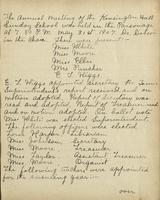 The Annual Meeting of the Kensington Hall
Sunday School was held in the Parsonage
At 7. P.M. May 31st 1907. Dr.
in the Chair. There were present:—
Miss White
Miss Moore
Miss Ellis
Miss
E. J. Higgs
E. J. Higgs appointed Secretary. The
Superintendent's report received and on
motion adopted. Report of Secretary was
read and adopted. Report of Treasurer read
and on motion adopted. On ballot vote
Miss White was elected Superintendent.
The following officers were elected.
Librarian
Miss Secretary
Miss Moore Treasurer
Miss Taylor Assistant Treasurer
Miss Moore Organist
The following teachers were appointed for
the ensuing year:—
over